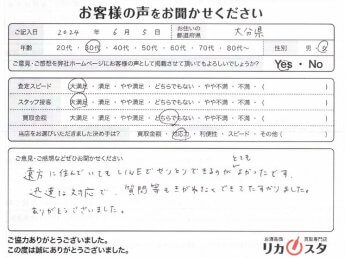 お客様の声をお聞かせください
ご記入日 2024 年 6 月 5 日 お住いの都道府県 大分県
年齢 20代・30代・40代・50代・60代・70代・80代〜 性別 男・女
ご意見・ご感想を弊社ホームページにお客様の声として掲載させて頂いてもよろしいでしょうか? Yes・No
査定スピード 大満足・満足・やや満足・どちらでもない・やや不満・不満・( )
スタッフ接客 大満足・満足・やや満足・どちらでもない・やや不満・不満・( )
買取金額 大満足・満足・やや満足・どちらでもない・やや不満・不満・( )
当店をお選びいただきました決め手は? 買取金額・対応力・利便性・スピード・その他( )
ご意見・ご感想などぜひお聞かせください
遠方に住んでいてもLINEでやりとりできるのがとてもよかったです。
迅速な対応で、質問等もきがねなくできてたすかりました。
ありがとうございました。
ご協力ありがとうございました。
この度は誠にありがとうございました。
お酒高価買取専門店
リカスタ